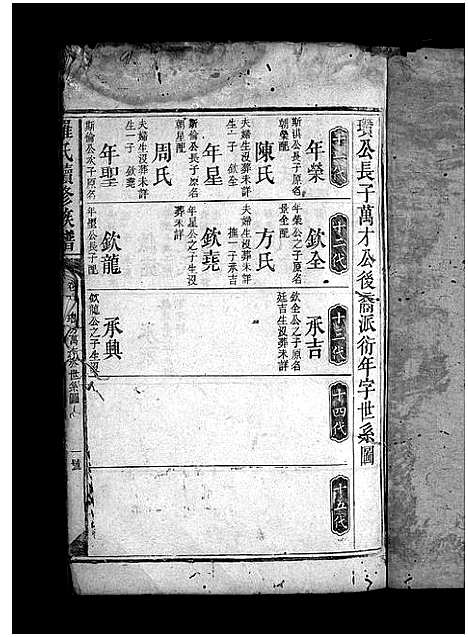 瓚公長子萬才公後裔派衍年字世系圖
十一代
年榮
斯洪公長子原名
朝榮配
陳氏
夫婦生沒葬未詳
生一子 欽全
年星
斯倫公長子原名
朝星配
周氏
夫婦生沒葬未詳
生一子 欽堯
年聖
斯倫公次子原名
十二代
欽全
年榮公之子原名
景全配
方氏
夫婦生沒葬未詳
撫一子承吉
欽堯
年星公之子生沒
葬未詳
欽龍
年聖公長子配
十三代
承吉
欽全公之子原名
廷吉生沒葬未詳
承興
欽龍公之子生沒
十四代
十五代
羅氏續修族譜
萬才公世系圖
一號